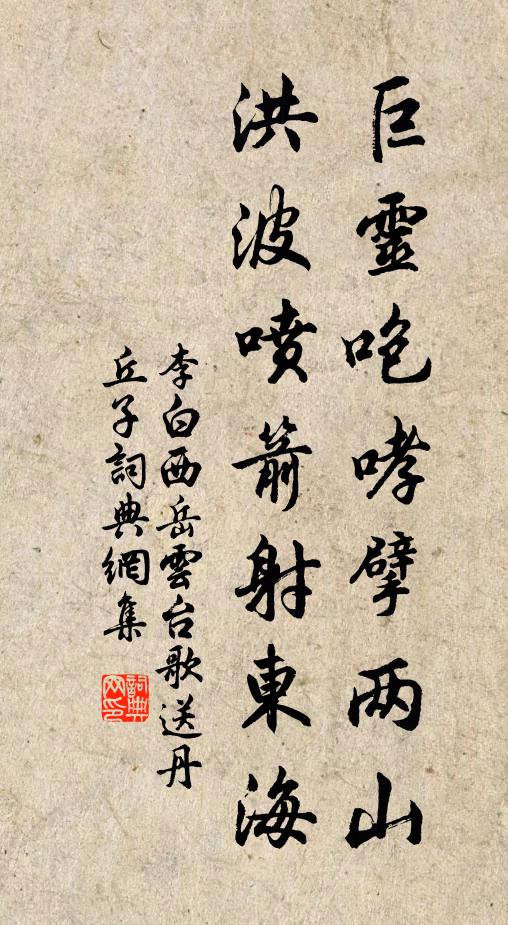 巨靈咆哮擘两山
洪波喷箭射東海
李白西岳雲台歌送丹
丘子詞典網集
詞典
网印